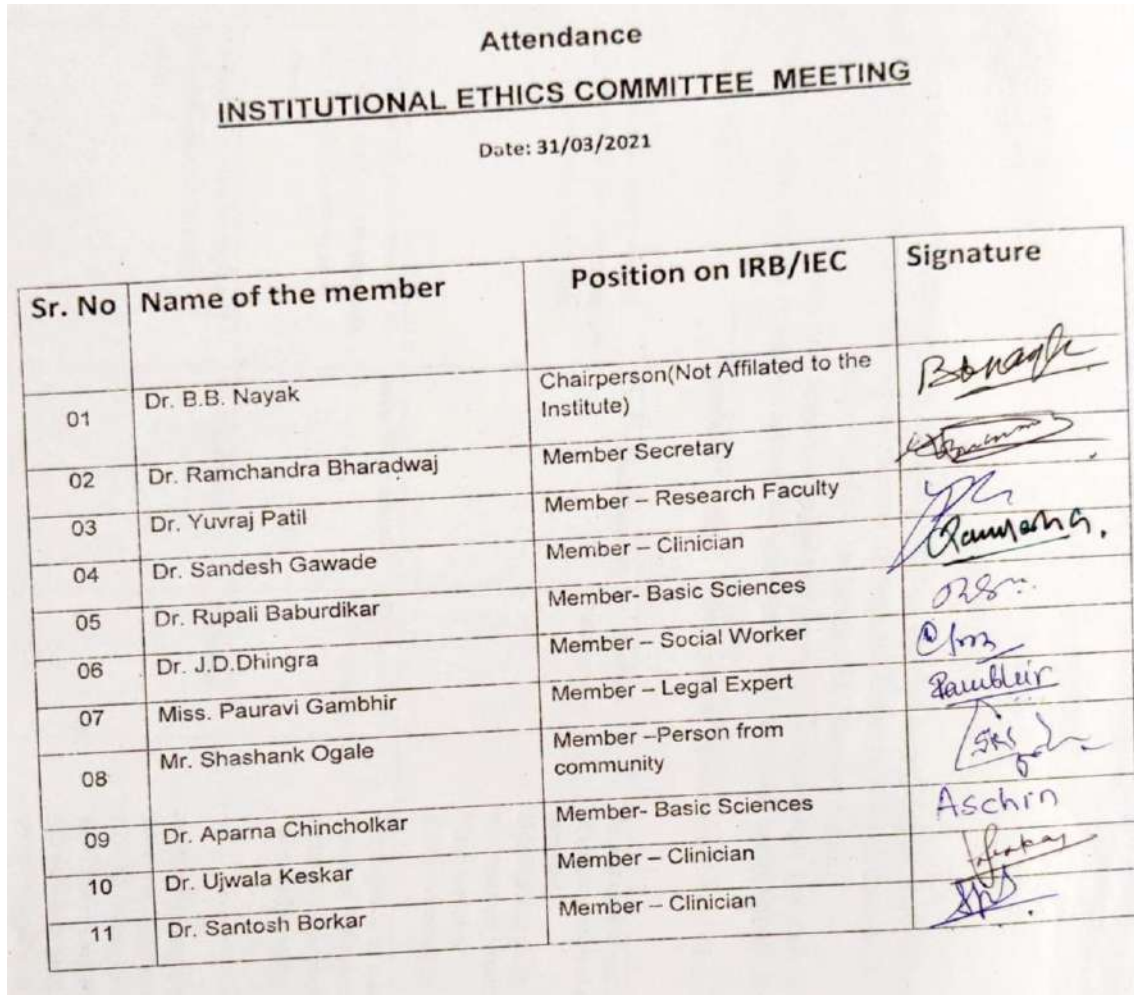 Attendance
INSTITUTIONAL ETHICS COMMITTEE MEETING
Date: 31/03/2021
Sr. No Name of the member Position on IRB/IEC Signature
01 Dr. B.B. Nayak Chairperson(Not Affilated to the
Institute)
02 Dr. Ramchandra Bharadwaj Member Secretary
03 Dr. Yuvraj Patil Member – Research Faculty
04 Dr. Sandesh Gawade Member – Clinician
05 Dr. Rupali Baburdikar Member- Basic Sciences
06 Dr. J.D.Dhingra Member – Social Worker
07 Miss. Pauravi Gambhir Member – Legal Expert
08 Mr. Shashank Ogale Member –Person from
community
09 Dr. Aparna Chincholkar Member- Basic Sciences Aschin
10 Dr. Ujwala Keskar Member – Clinician
11 Dr. Santosh Borkar Member – Clinician